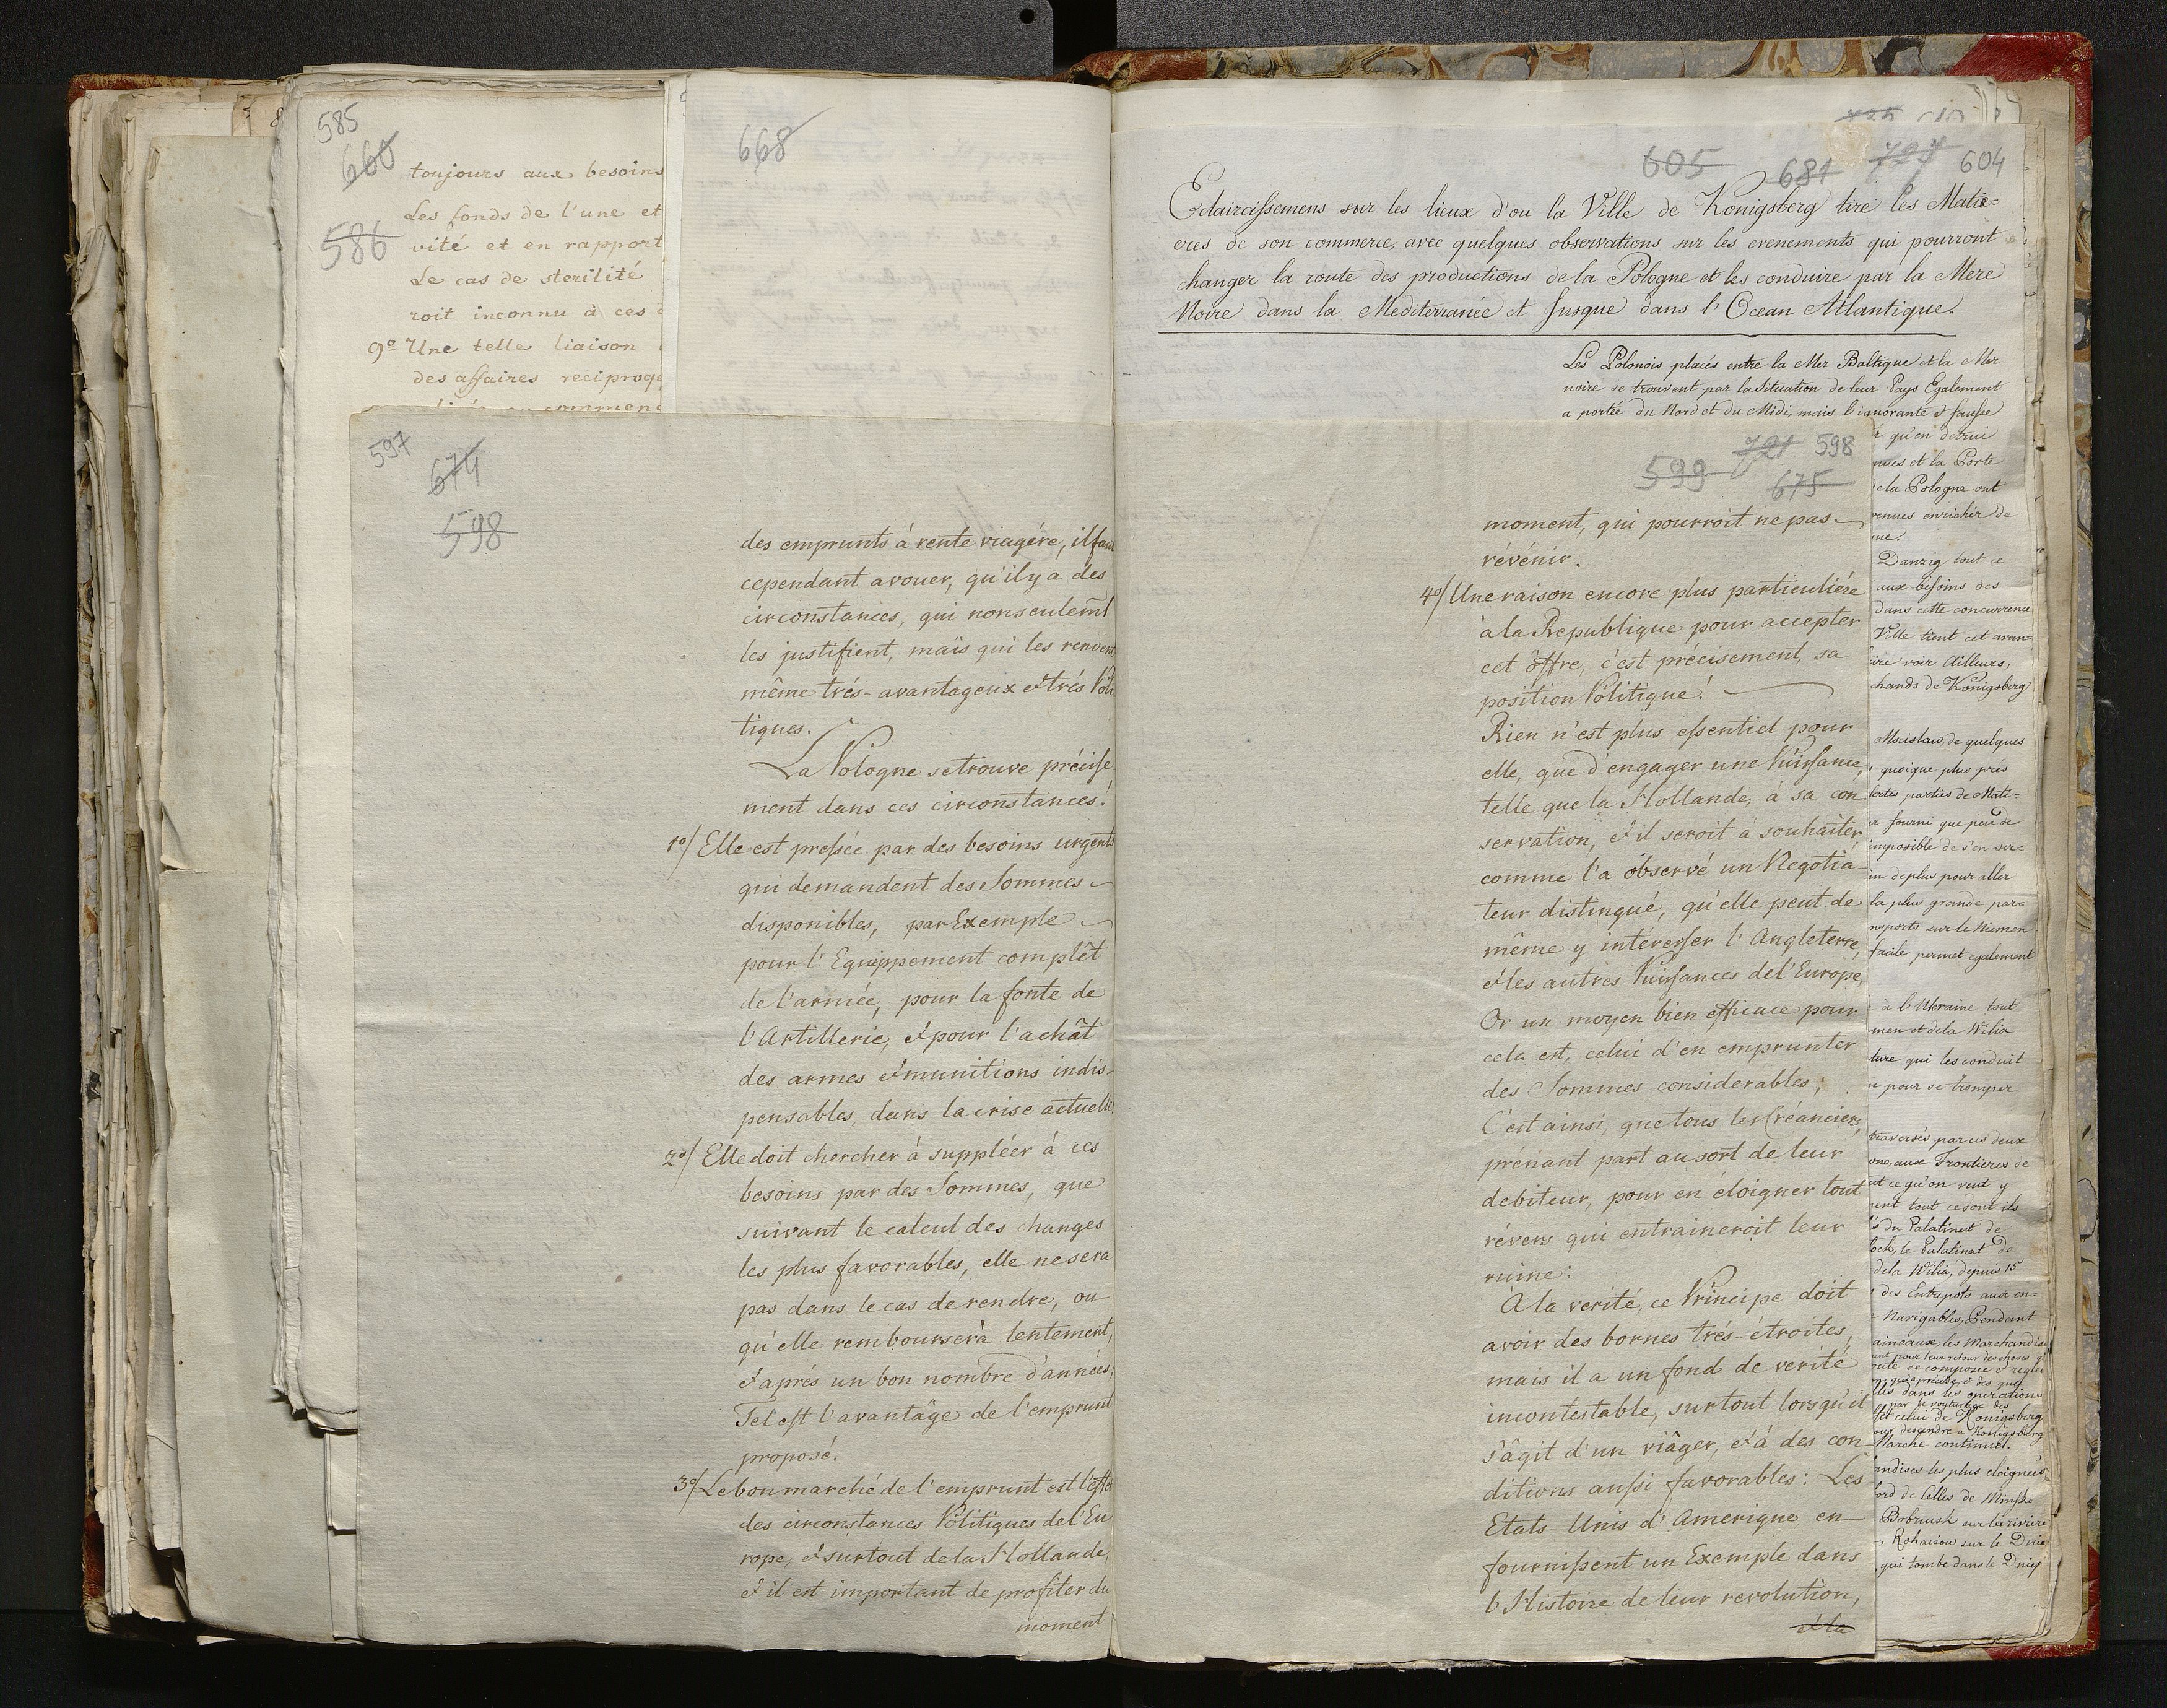 585
660
586
toujours aux besoins
Les fonds de l'une et
vité et en rapport
Le cas de sterilité
roit inconnu à ces
9º Une telle liaison
des affaires reciproq
668
597
674
598
des emprunts à rente viagére, il faut
cependant avouer, qu'il y a des
circonstances, qui nonseulem̃t
les justifient, mais qui les rendent
même trés-avantageux et trés Poli
tiques.
La Pologne se trouve précise
ment dans ces circonstances!
1º/ Elle est pressée par des besoins urgents
qui demandent des Sommes
disponibles, par Exemple
pour l'Equippement complêt
de l'armée, pour la fonte de
l'Artillerie, et pour l'achât
des armes et munitions indis-
pensables, dans la crise actuelle.
2º/ Elle doit chercher à suppléer à ces
besoins par des Sommes, que
suivant le calcul des changes
les plus favorables, elle ne sera
pas dans le cas de rendre, ou
qu'elle remboursera lentement,
et aprés un bon nombre d'années;
Tel est l'avantâge de l'emprunt
proposé.
3º/ Le bon marché de l'emprunt est l'effet
des circonstances Politiques de l'Eu
rope, et surtout de la Hollande,
et il est important de profiter du
moment
605 681 727 604
Eclaircissemens sur les lieux d'ou la Ville de Konigsberg tire les Matie=
eres de son commerce, avec quelques observations sur les evenements qui pourront
changer la route des productions de la Pologne et les conduire par la Mere
Noire dans la Mediterranée et Jusque dans l'Ocean Atlantique.
Les Polonois placés entre la Mer Baltique et la Mer
noire se trouvent par la Situation de leur Pays Egalement
a portée du Nord et du Midi, mais l'ignorante & fausse
721 598
599 675
moment, qui pourroit ne pas
révénir.
4º/ Une raison encore plus particuliére
à la Republique pour accepter
cet ôffre, c'est précisement, sa
position Politique!
Rien n'est plus essentiel pour
elle, que d'engager une Puissance,
telle que la Hollande, à sa con
servation, et il seroit à souhaiter
comme l'a observé un Negotia-
teur distingué, qu'elle peut de
même y intéresser l'Angleterre,
et les autres Puissances de l'Europe,
Or un moyen bien efficace pour
cela est, celui d'en emprunter
des Sommes considerables;
C'est ainsi, que tous les Créanciers,
prénant part au sort de leur
debiteur, pour en éloigner tout
révers qui entraineroit leur
ruine:
A la verité, ce Principe doit
avoir des bornes trés-étroites,
mais il a un fond de verité
incontestable, surtout lorsqu'il
s'âgit d'un viâger, et à des con
ditions aussi favorables: Les
Etats-Unis d'Amerique en
fournissent un Exemple dans
l'Histoire de leur revolution,
et la
qu'en detrui
nues et la Porte
de la Pologne ont
venues enrichir de
Danzig tout ce
aux besoins des
dans cette concurrence
Ville tient cet avan=
ire voir Ailleurs,
chands de Konigsberg
Mscislaw, de quelques
quoique plus prés
fertes parties de Mati=
r fourni que peu de
imposible de s'en ser=
in de plus pour aller
la plus grande par=
nsports sur le Niemen
facile permet egalement
à l'Ukraine tout
men et de la Wilia
ture qui les conduit
pour se tromper
traversés par ces deux
ono, aux Frontieres de
ut ce qu'on veut y
nent tout ce dont ils
s du Palatinat de
lock, le Palatinat de
de la Wilia, depuis 15
des Entrepots aux en=
Navigables, Pendant
aineaux les Marchandis
lles dans les operations
et celui de Konigsberg
our descendre a Konigsberg
Marche continuel.
andises les plus eloignées
ord de Celles de Minsk
Bobruisk sur la riviere
Rohaisow sur le Dnie
qui tombe dans le Dniep